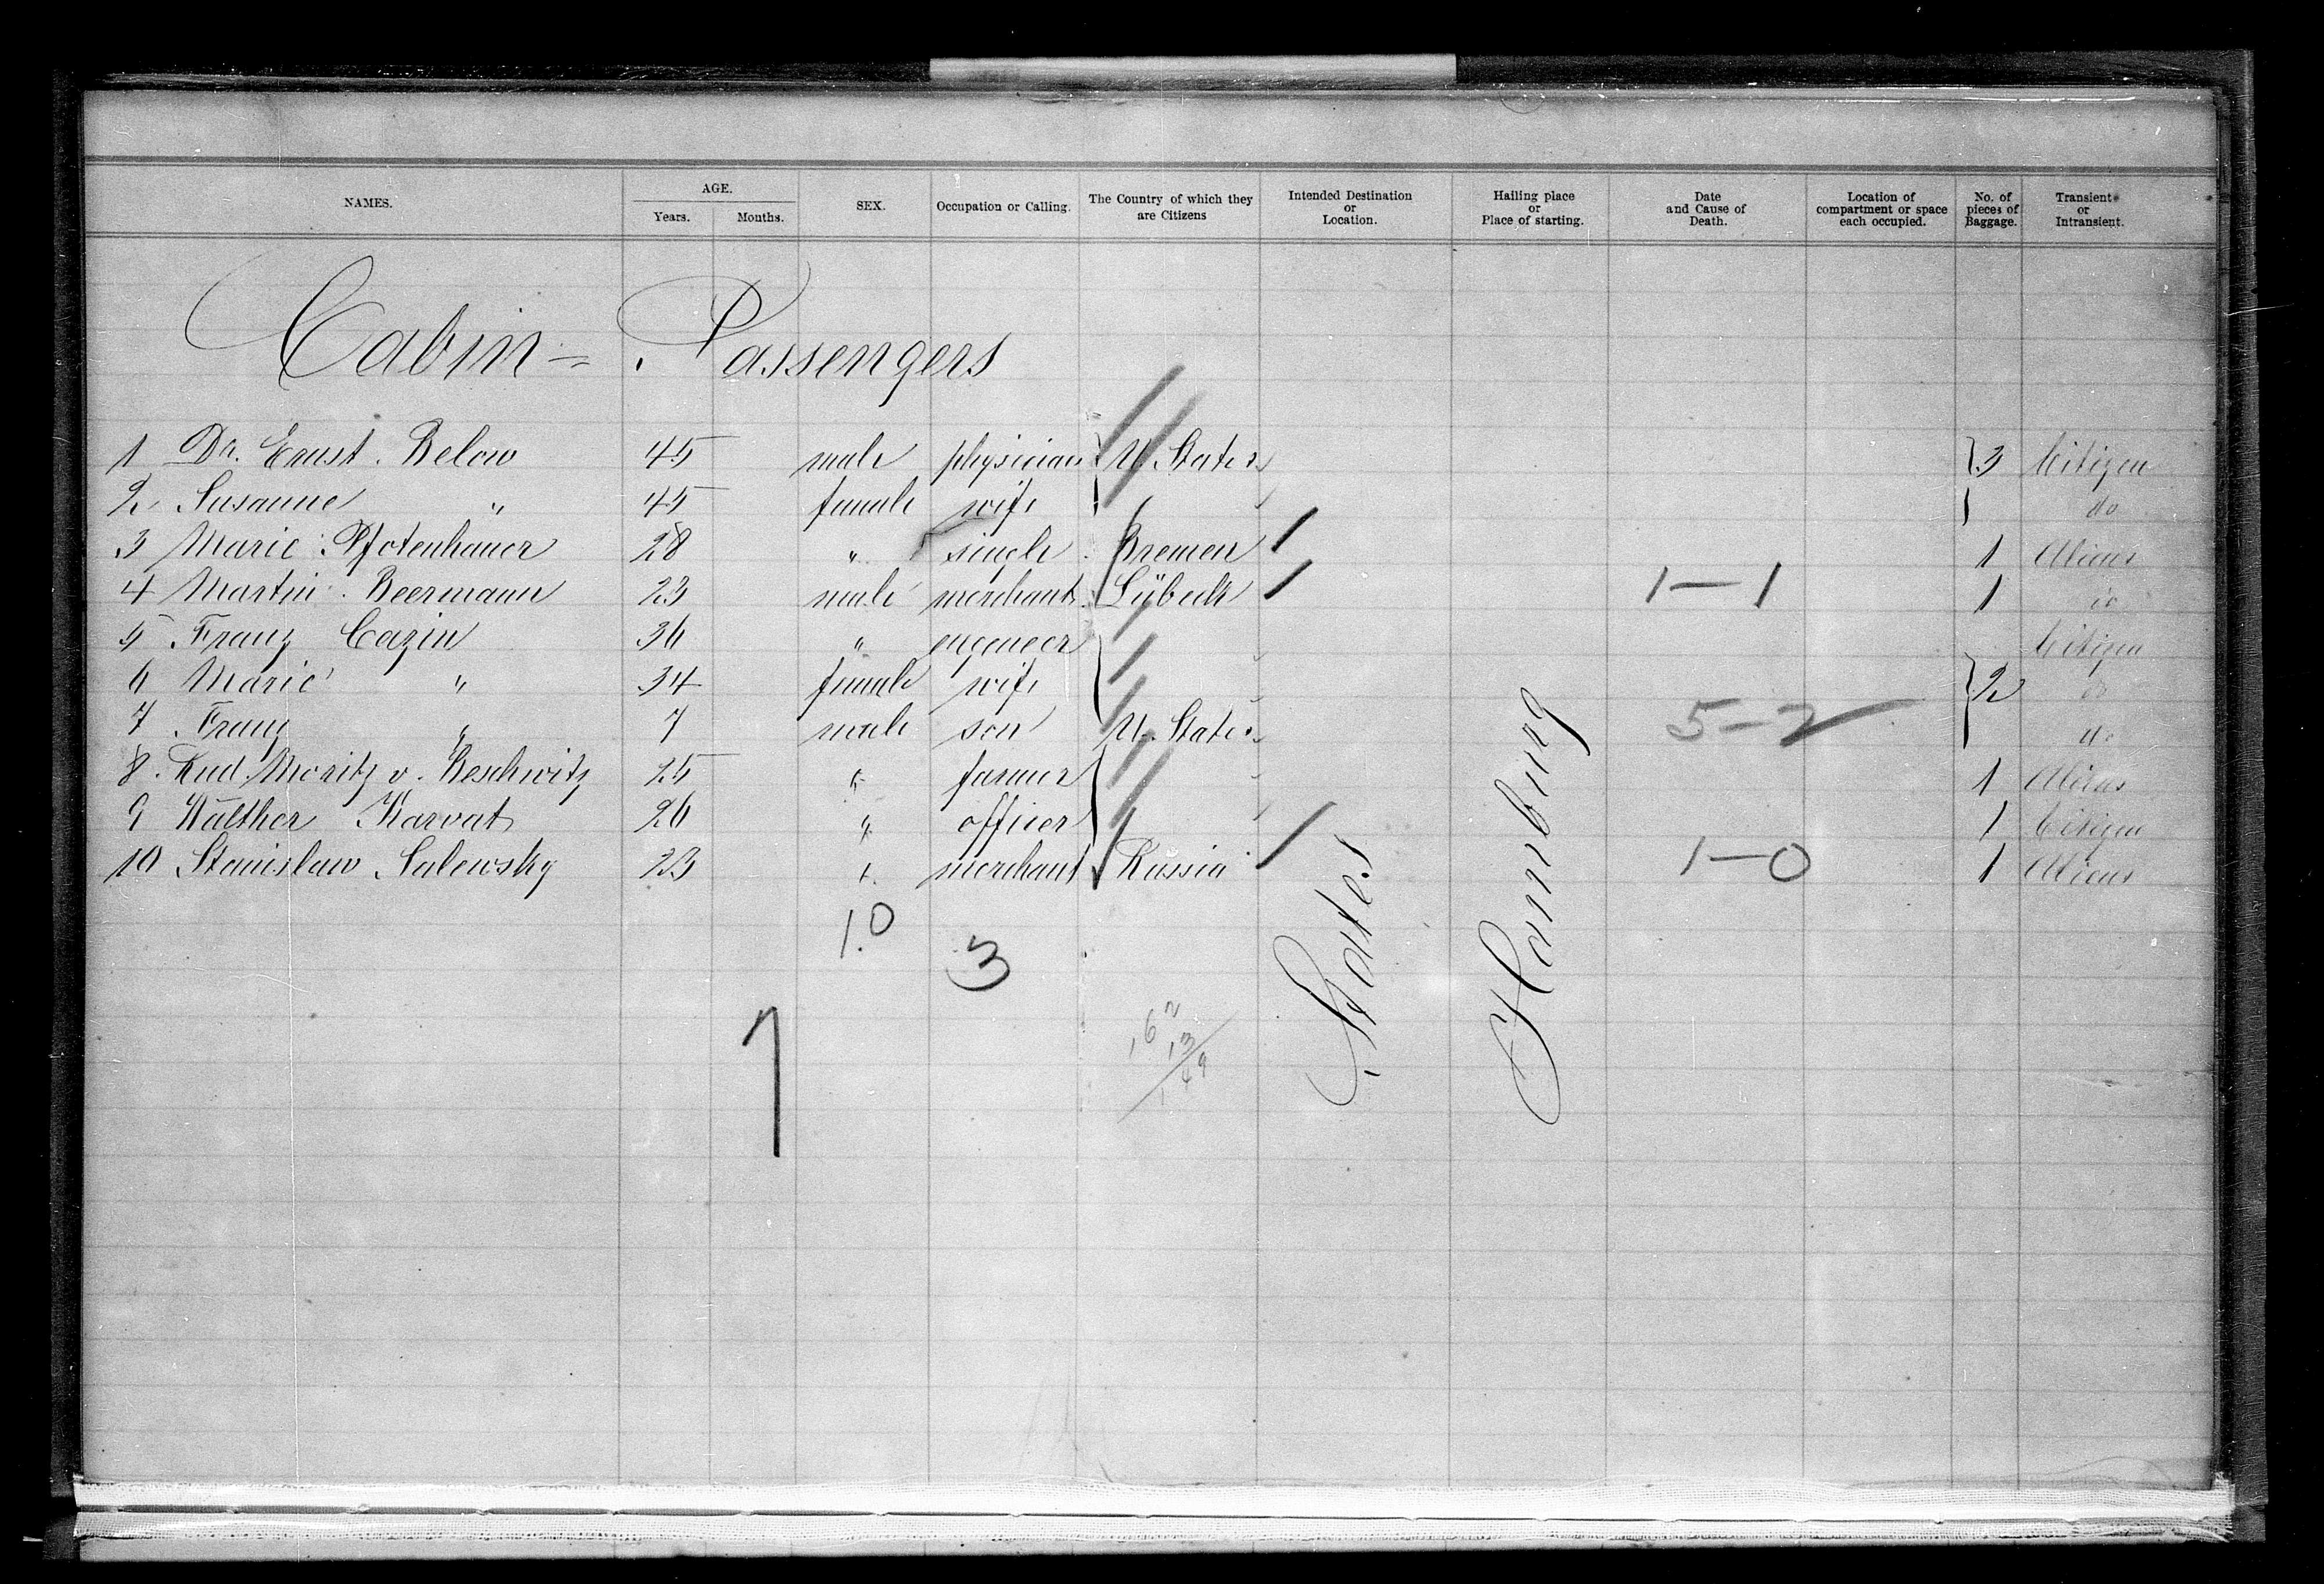 NAMES. AGE. Years. Months. SEX. Occupation or Calling. The Country of which they are Citizens Intended Destination or Location. Hailing place or Place of starting. Date and Cause of Death. Location of compartment or space each occupied. No. of pieces of Baggage. Transient or Intransient.
Cabin = Passengers
1 Dr. Ernst Below 45 male physician U. States 3 Citizen
2 Susanne " 45 female wife do
3 Marie Pfotenhauer 28 " single Bremen 1 Alien
4 Martin Beermann 23 male merchant Lübeck 1-1 1 do
5 Franz Cazin 36 " engeneer Citizen
6 Marie " 34 female wife 2 do
7 Franz " 7 male son U. States 5-2 do
8 Rud. Moritz v. Beschwitz 25 " farmer 1 Alien
9 Walther Karvat 26 " officer 1 Citizen
10 Stanislaw Salewsky 23 " merchant Russia 1-0 1 Alien
States
Hamburg
10
3
162
13
149
1